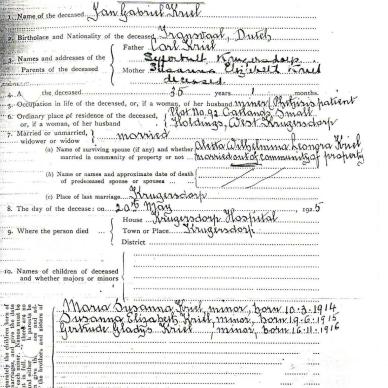 1. Name of the deceased Jan Gabriel Kriel
2. Birthplace and Nationality of the deceased Transvaal, Dutch
3. Names and addresses of the Parents of the deceased
Father Carl Kriel
Krugersdorp
Mother Susanna Elizabeth Kriel
deceased
4. A the deceased 35 years months.
5. Occupation in life of the deceased, or, if a woman, of her husband miner, Phthisis patient
6. Ordinary place of residence of the deceased, or, if a woman, of her husband Plot No. 92 Small
Holdings, West Krugersdorp
7. Married or unmarried, widower or widow married
(a) Name of surviving spouse (if any) and whether married in community of property or not Aletta Wilhelmina Kriel
married out of community of property
(b) Name or names and approximate date of death of predeceased spouse or spouses
(c) Place of last marriage Krugersdorp
8. The day of the decease: on 20th May 1925
9. Where the person died
House Krugersdorp Hospital
Town or Place Krugersdorp
District
10. Names of children of deceased and whether majors or minors
Maria Susanna Kriel, minor, born 10.3.1914
Susanna Elizabeth Kriel, minor, born 19.6.1915
Gertrude Gladys Kriel, minor, born 16.11.1916